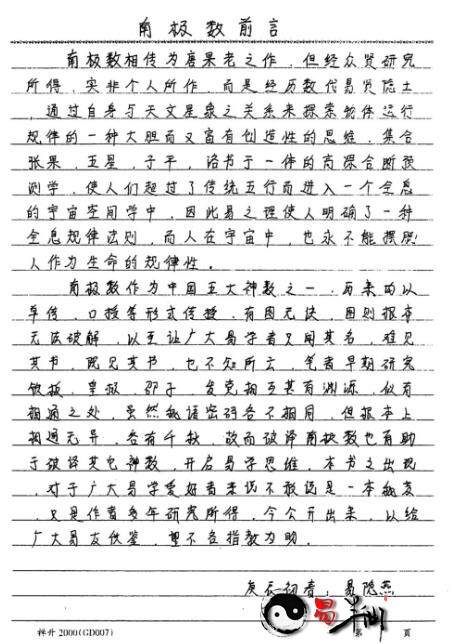 南极数前言
南极数相传为唐果老之作,但经众贤研究
所得,实非个人所作,而是经历数代易贤隐士
,通过自身与天文星象之关系来探索物体运行
规律的一种大胆而又富有创造性的思维,集合
张果,五星,子平,洛书于一体的高深合断预
测学,使人们超过了传统五行而进入一个全息
的宇宙空间学中,因此易之理使人明确了一种
全息规律法则,而人在宇宙中,也永不能摆脱
人作为生命的规律性。
南极数作为中国五大神数之一,历来均以
单传,口授等形式传授,有图无诀,图则根本
无法破解,以至让广大易学者只闻其名,难见
其书,既见其书,也不知所云,笔者早期研究
铁板,皇极,邵子,发觉相互甚有渊源,似有
相通之处,虽然秘语密码各不相同,但根本上
相通无异,各有千秋,故而破译南极数也有助
于破译其它神数,开启易学思维,本书之出现
,对于广大易学爱好者来说不敢说是一本秘笈
,只是作者多年研究所得,今公开出来,以给
广大易友供鉴,望不吝指教为助。
庚辰初春:易隐燕
易羊网
梓升2000(GD007)
第 页